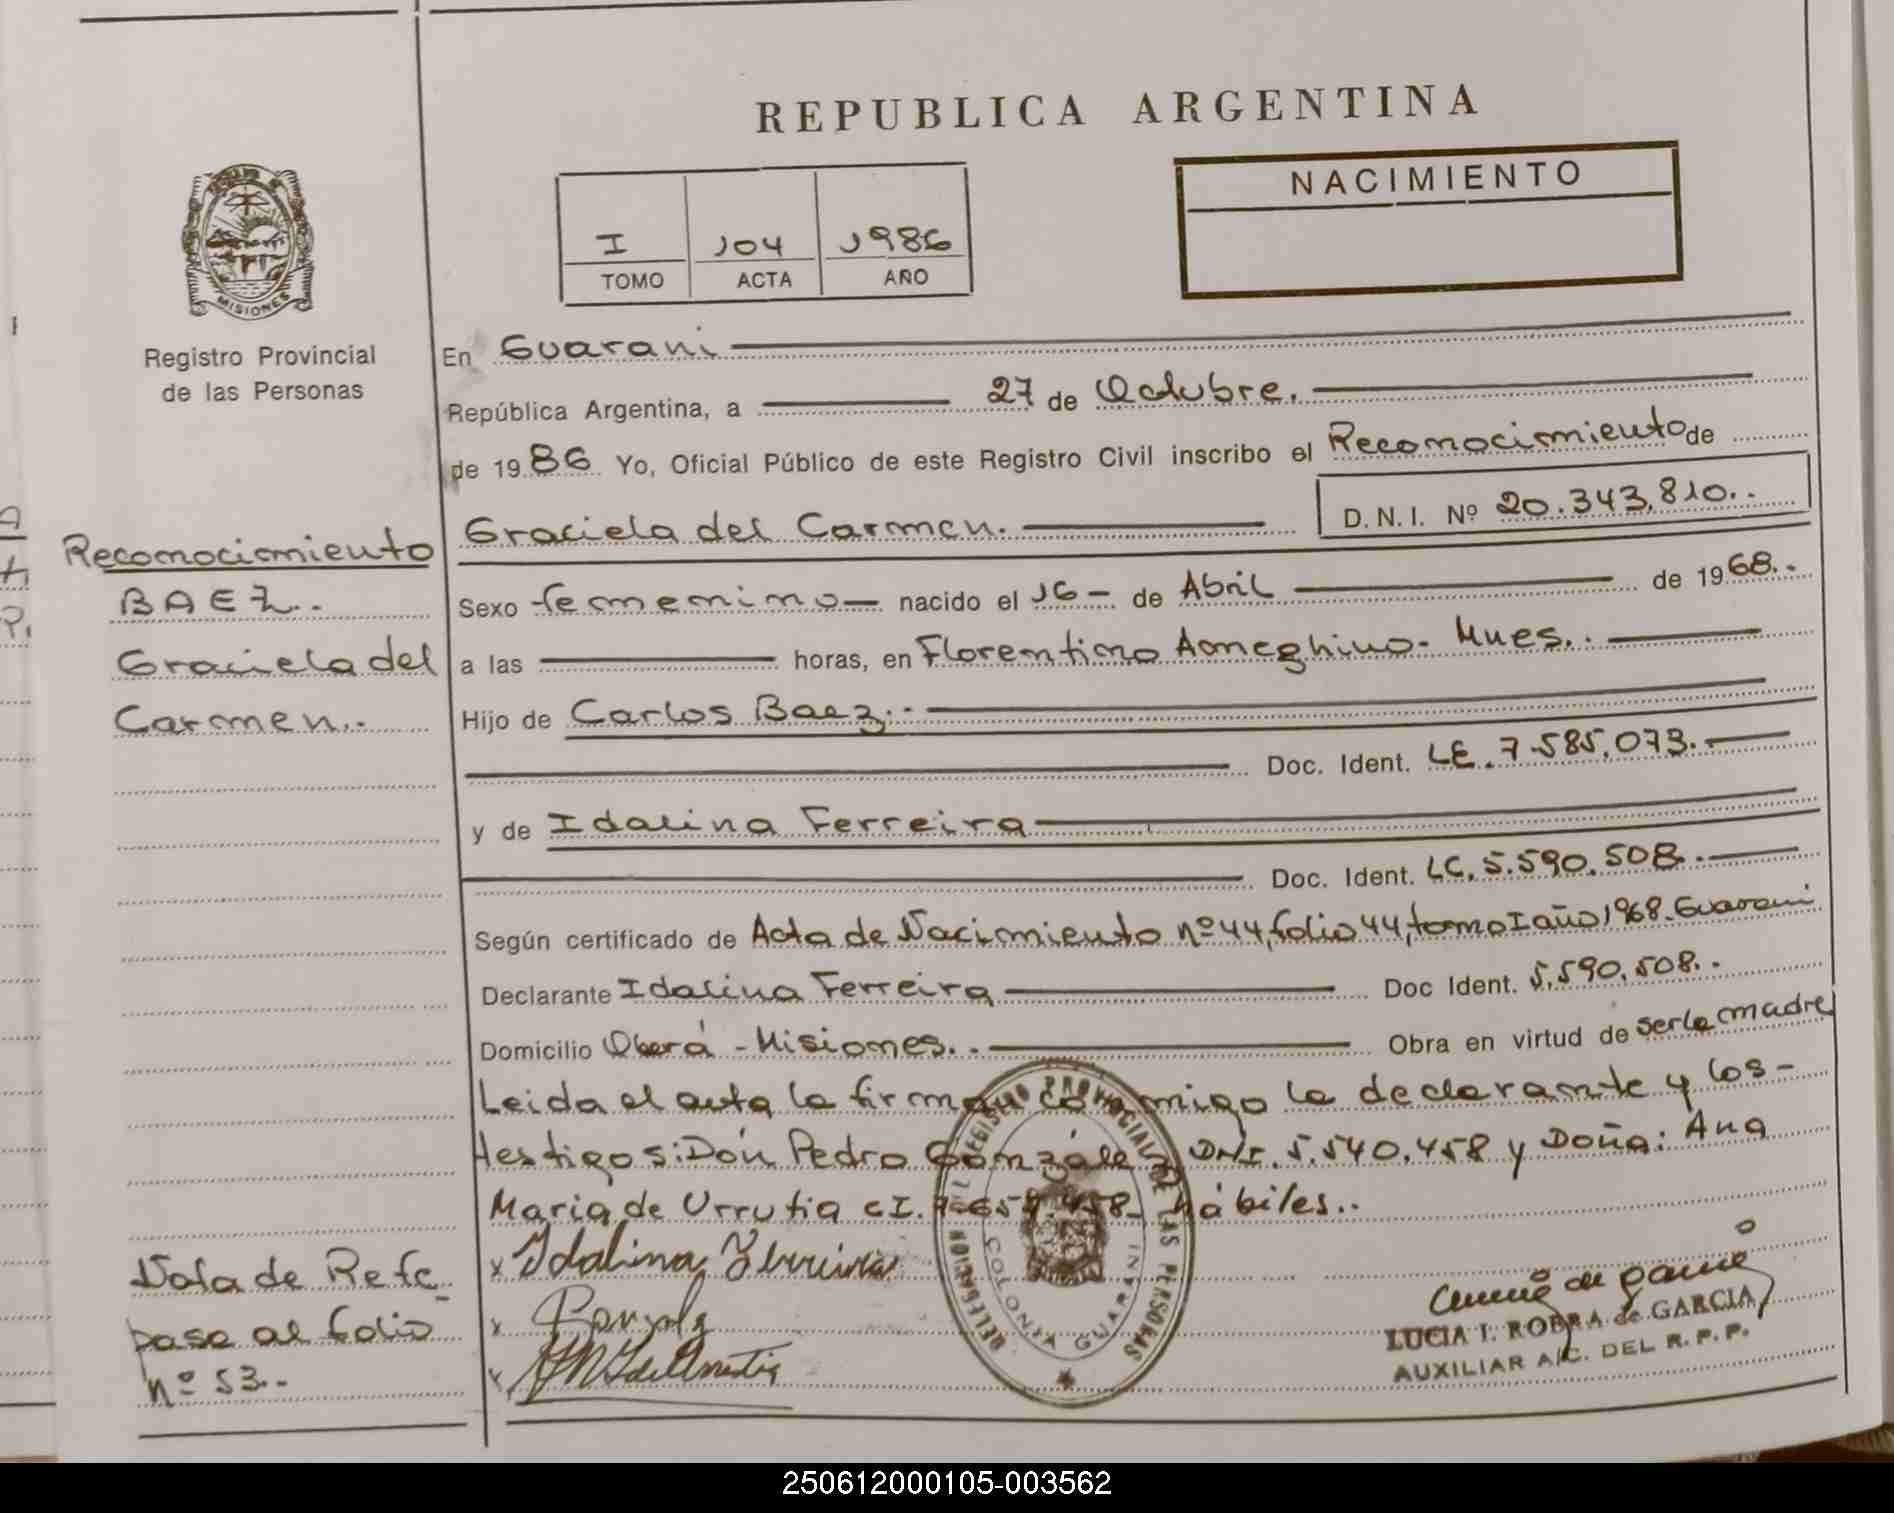 REPUBLICA ARGENTINA
NACIMIENTO
I 104 1986
TOMO ACTA AÑO
MISIONES
Registro Provincial
de las Personas
En Guarani
República Argentina, a 27 de Octubre.
de 1986 Yo, Oficial Público de este Registro Civil inscribo el Reconocimiento de
Graciela del Carmen. D.N.I. Nº 20.343.810..
Sexo femenino nacido el 16 - de Abril de 1968..
a las horas, en Florentino Ameghino - Mnes..
Hijo de Carlos Baez..
Doc. Ident. LE. 7.585.073.
y de Idalina Ferreira
Doc. Ident. LC. 5.590.508.
Según certificado de Acta de Nacimiento nº 44, folio 44, tomo I año 1968. Guarani
Declarante Idalina Ferreira Doc Ident. 5.590.508..
Domicilio Oberá - Misiones.. Obra en virtud de ser la madre
Leida el acta la firman conmigo la declarante y los -
testigos: Don Pedro González DNI. 5.540.458 y Doña: Ana
Maria de Urrutia CI. hábiles..
x Idalina Ferreira
x Gonzalz
x
LUCIA I. ROBRA de GARCIA
AUXILIAR A/C. DEL R. P. P.
DELEGACION DEL REGISTRO PROVINCIAL DE LAS PERSONAS
COLONIA GUARANI
Reconocimiento
BAEZ..
Graciela del
Carmen..
Nota de Refe_
pasa al folio
nº 53..
250612000105-003562